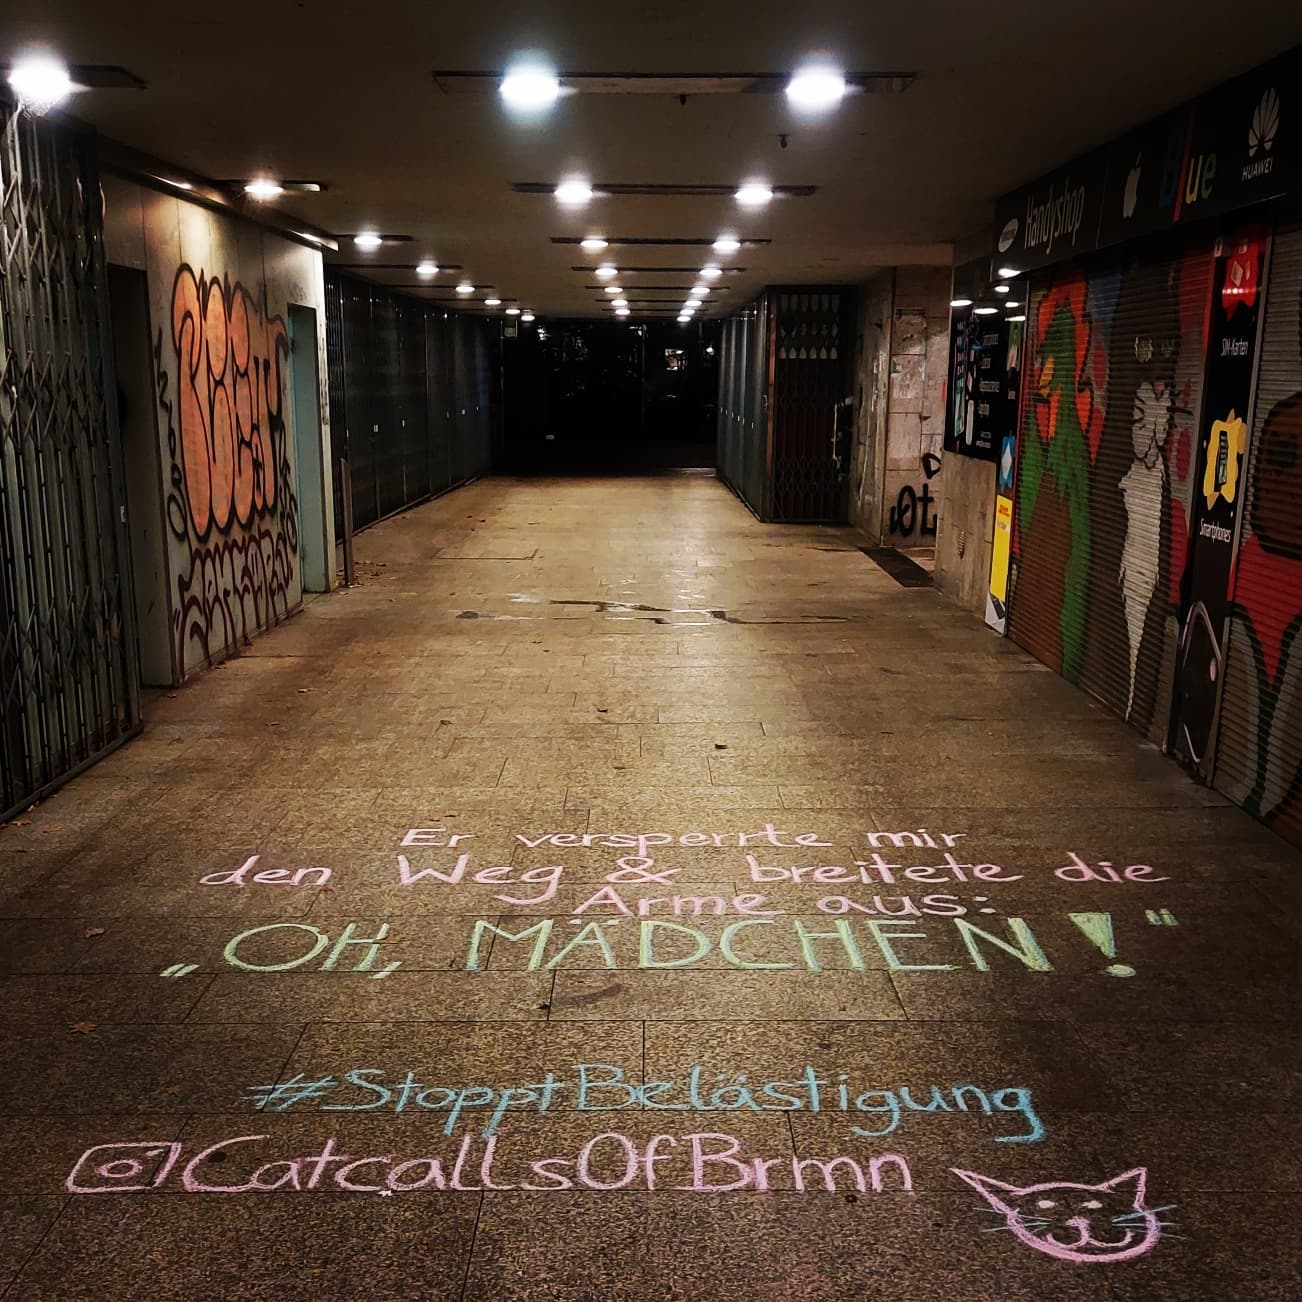 HUAWEI
Blue
SAMSUNG
Handyshop
SIM-Karten
Smartphones
Er versperrte mir
den Weg & breitete die
Arme aus:
„OH, MÄDCHEN!"
#StopptBelästigung
@CatcallsOfBrmn